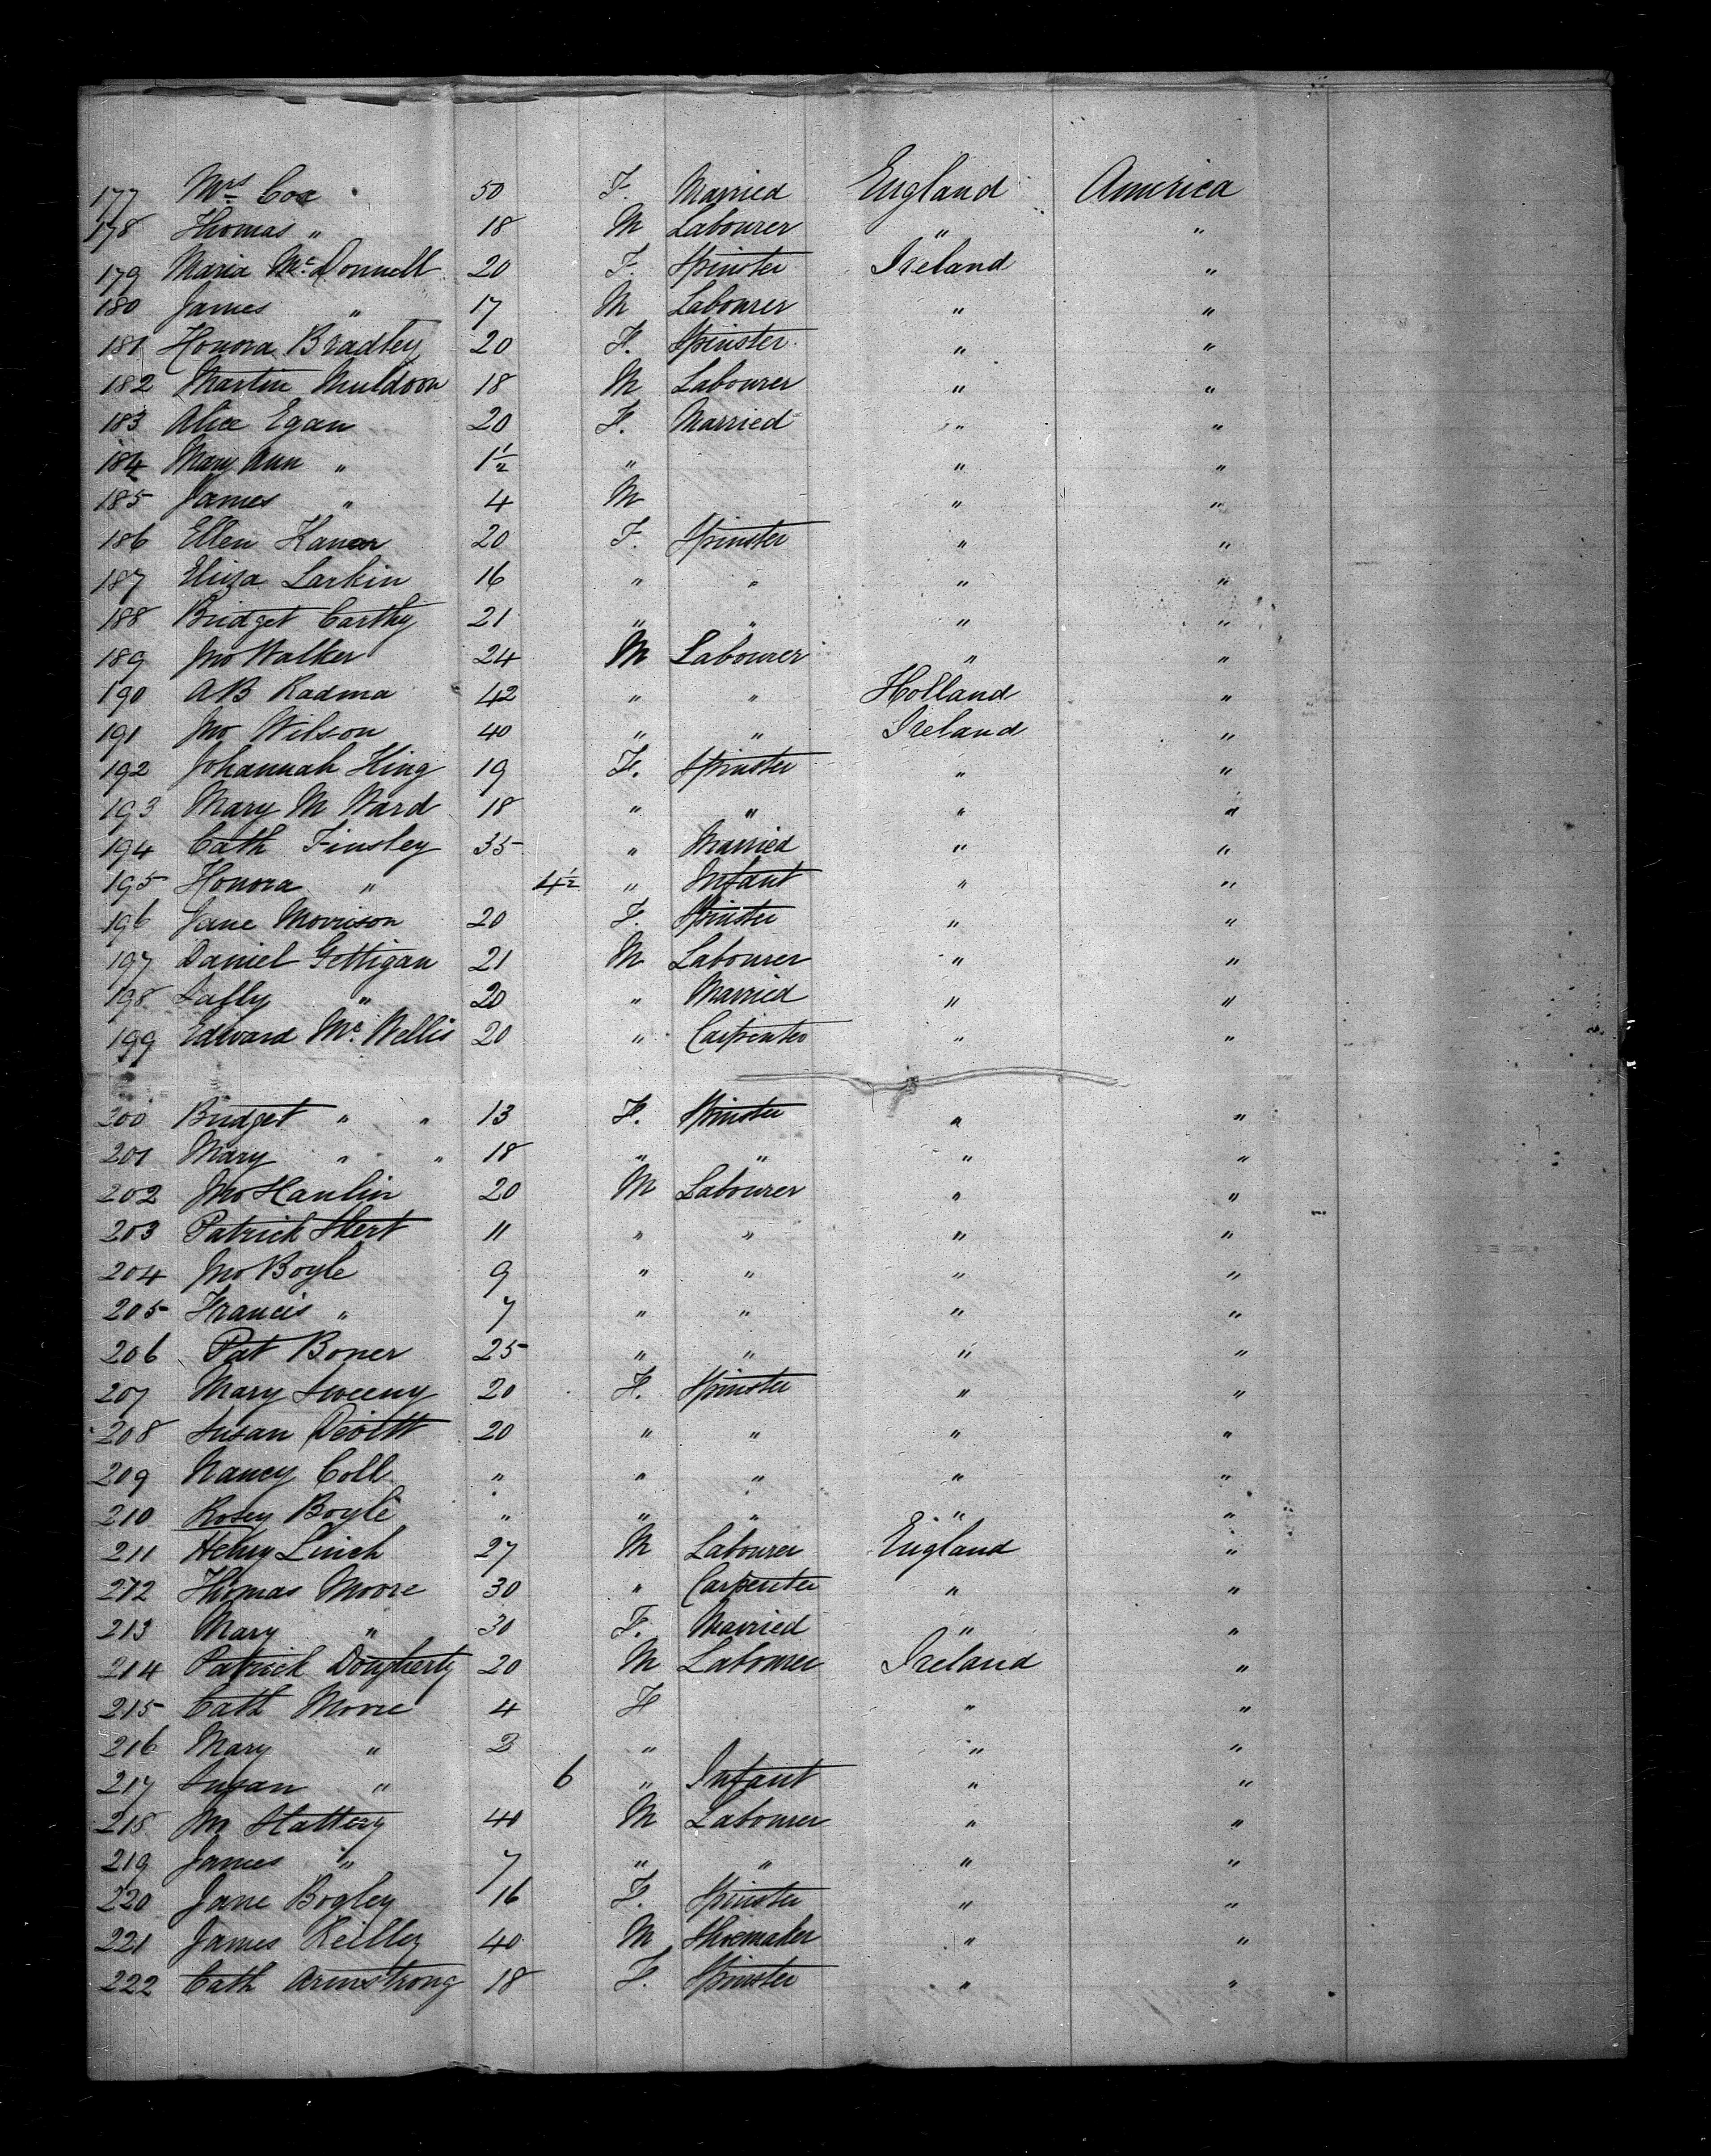 177 Mrs Cox 50 F. Married England America
178 Thomas " 18 M Labourer " "
179 Maria McDonnell 20 F. Spinster Ireland "
180 James " 17 M Labourer " "
181 Honora Bradley 20 F. Spinster " "
182 Martin Muldoon 18 M Labourer " "
183 Alice Egan 20 F. Married " "
184 Mary Ann " 1½ " " "
185 James " 4 M " "
186 Ellen 20 F. Spinster " "
187 Eliza Larkin 16 " " " "
188 Bridget Carthy 21 " " " "
189 Jno Walker 24 M Labourer " "
190 AB Radma 42 " " Holland "
191 Jno Wilson 40 " " Ireland "
192 Johannah King 19 F. Spinster " "
193 Mary M Ward 18 " " " "
194 Cath Finsley 35 " Married " "
195 Honora " 4½ " Infant " "
196 Jane Morrison 20 F. Spinster " "
197 Daniel Gettigan 21 M Labourer " "
198 " 20 " Married " "
199 Edward Mc. Wellis 20 " Carpenter " "
200 Bridget " " 13 F. Spinster " "
201 Mary " " 18 " " " "
202 Jno Hanlin 20 M Labourer " "
203 Patrick 11 " " " "
204 Jno Boyle 9 " " " "
205 Francis " 7 " " " "
206 Pat Boner 25 " " " "
207 Mary Sweeny 20 F. Spinster " "
208 Susan 20 " " " "
209 Nancy Coll " " " " "
210 Rosey Boyle " " " " "
211 Henry Linch 27 M Labourer England "
212 Thomas Moore 30 " Carpenter " "
213 Mary " 30 F. Married " "
214 Patrick Dougherty 20 M Labourer Ireland "
215 Cath Moore 4 F " "
216 Mary " " " "
217 Susan " 6 " Infant " "
218 Slattery 40 M Labourer " "
219 James " 7 " " " "
220 Jane Bogley 16 F. Spinster " "
221 James Reilley 40 M Shoemaker " "
222 Cath Armstrong 18 F. Spinster " "